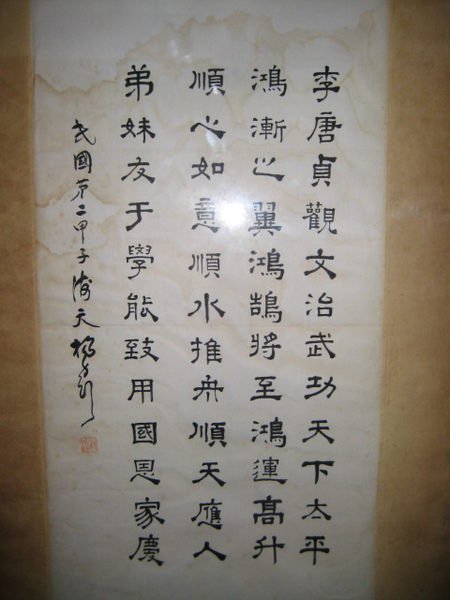 李唐貞觀文治武功天下太平
鴻漸之翼鴻鵠將至鴻運高升
順心如意順水推舟順天應人
弟妹友于學能致用國恩家慶
民國第二甲子